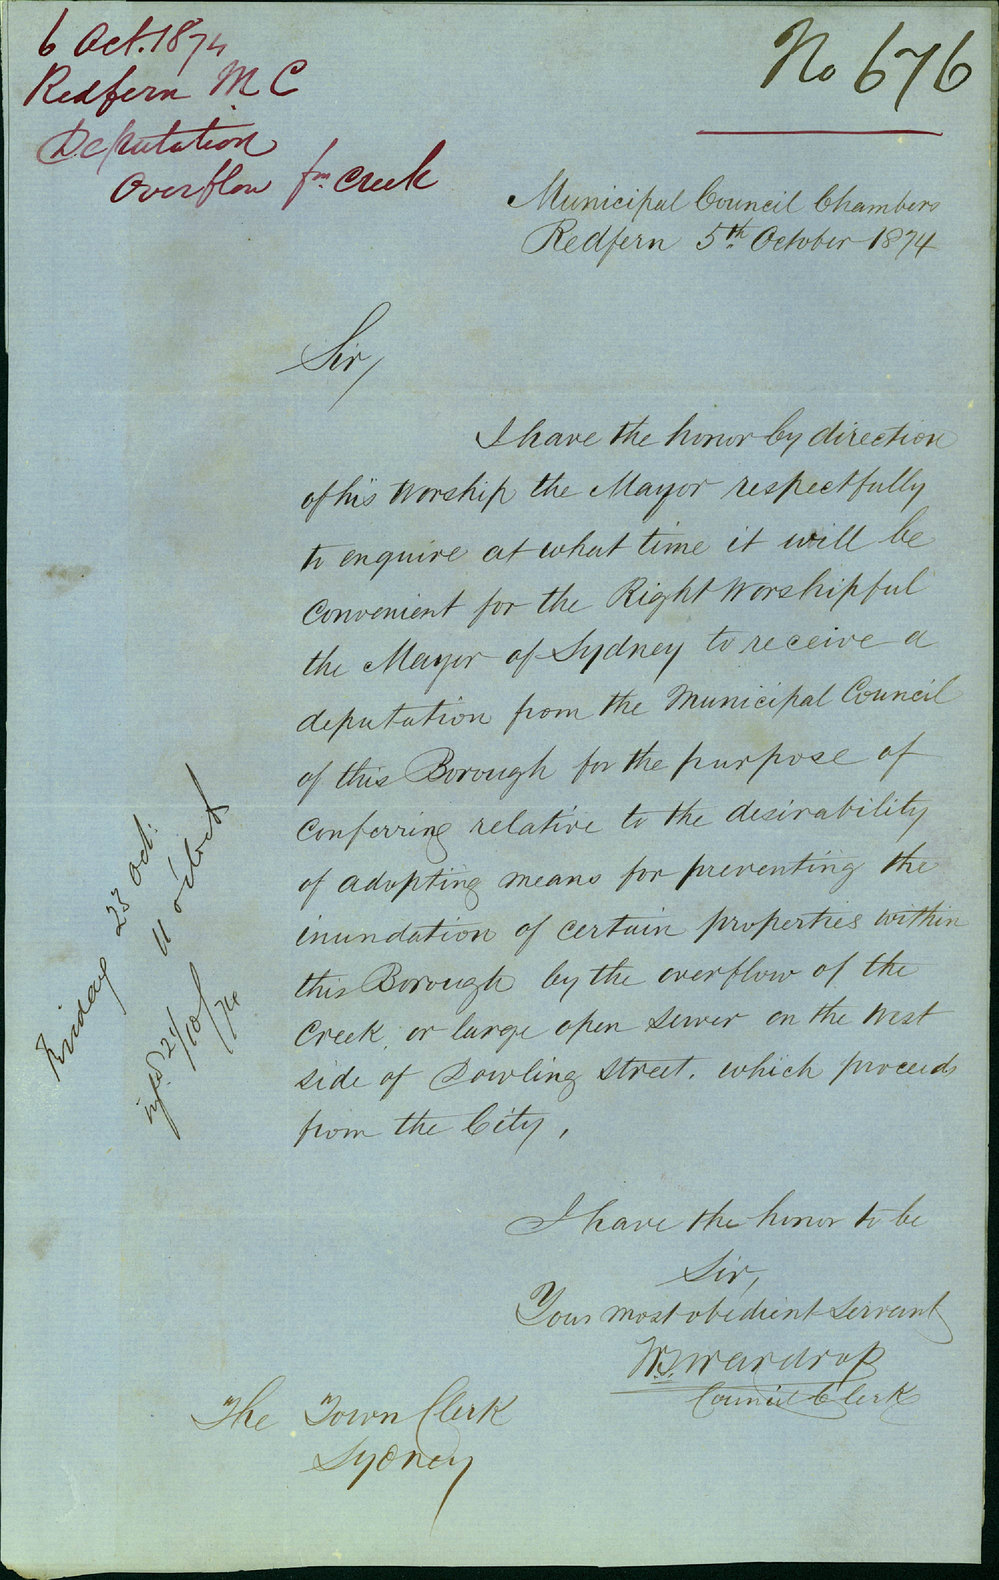 6 Oct. 1874
Redfern M C
Deputation
Overflow fm creek
No 676
Municipal Council Chambers
Redfern 5th October 1874
Sir,
I have the honor by direction
of his Worship the Mayor respectfully
to enquire at what time it will be
Convenient for the Right Worshipful
the Mayor of Sydney to receive a
deputation from the Municipal Council
of this Borough for the purpose of
Conferring relative to the desirability
of adopting means for preventing the
inundation of certain properties within
this Borough by the overflow of the
Creek, or large open Sewer on the West
side of Dowling Street. which proceeds
from the City,
Friday 23 Oct:
11 o'clock
21/10/74
I have the honor to be
Sir,
Your most obedient Servant
Wardrop
Council Clerk
The Town Clerk
Sydney